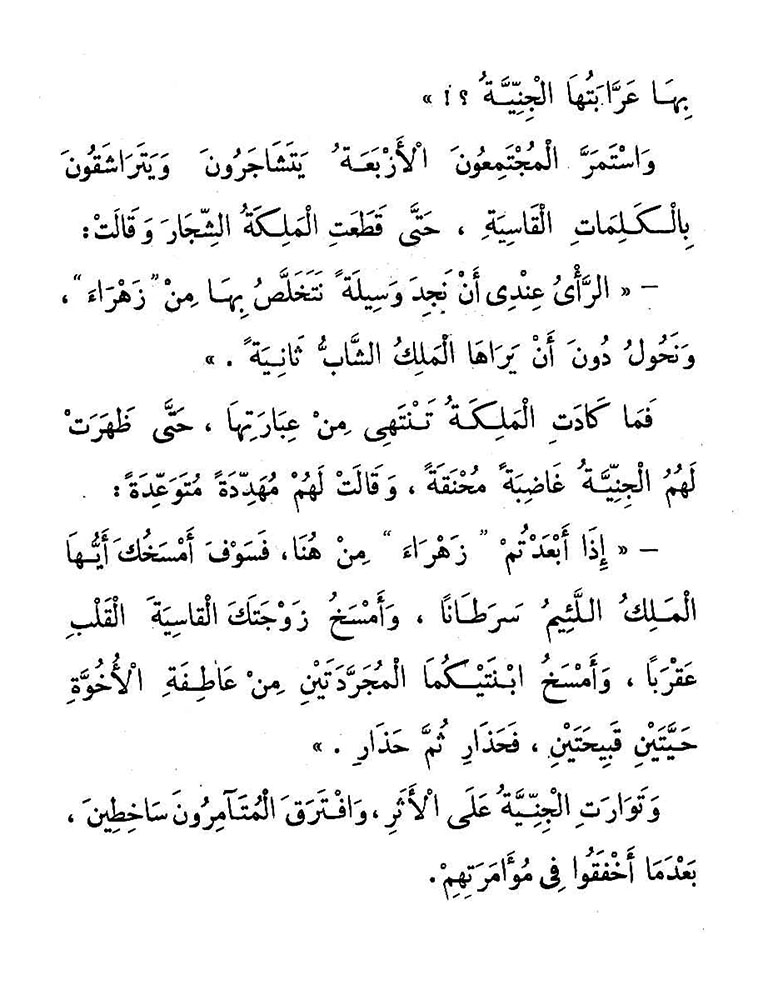 بِهَا عَرَّابَتُهَا الْجِنِّيَّةُ ؟! »
وَاسْتَمَرَّ الْمُجْتَمِعُونَ الْأَرْبَعَةُ يَتَشَاجَرُونَ وَيَتَرَاشَقُونَ
بِالْكَلِمَاتِ الْقَاسِيَةِ ، حَتَّى قَطَعَتِ الْمَلِكَةُ الشِّجَارَ وَقَالَتْ:
— « الرَّأْىُ عِنْدِى أَنْ نَجِدَ وَسِيلَةً نَتَخَلَّصُ بِهَا مِنْ “زَهْرَاءَ“،
وَنَحُولُ دُونَ أَنْ يَرَاهَا الْمَلِكُ الشَّابُّ ثَانِيَةً . »
فَمَا كَادَتِ الْمَلِكَةُ تَنْتَهِى مِنْ عِبَارَتِهَا ، حَتَّى ظَهَرَتْ
لَهُمُ الْجِنِّيَّةُ غَاضِبَةً مُحْنَقَةً ، وَقَالَتْ لَهُمْ مُهَدِّدَةً مُتَوَعِّدَةً :
— « إِذَا أَبْعَدْتُمْ “ زَهْرَاءَ “ مِنْ هُنَا، فَسَوْفَ أَمْسَخُكَ أَيُّهَا
الْمَلِكُ اللَّئِيمُ سَرَطَانًا ، وَأَمْسَخُ زَوْجَتَكَ الْقَاسِيَةَ الْقَلْبِ
عَقْرَبًا ، وَأَمْسَخُ ابْنَتَيْكُمَا الْمُجَرَّدَتَيْنِ مِنْ عَاطِفَةِ الْأُخُوَّةِ
حَيَّتَيْنِ قَبِيحَتَيْنِ ، فَحَذَارِ ثُمَّ حَذَارِ . »
وَتَوَارَتِ الْجِنِّيَّةُ عَلَى الْأَثَرِ ، وَافْتَرَقَ الْمُتَآمِرُونَ سَاخِطِينَ ،
بَعْدَمَا أَخْفَقُوا فِى مُؤَامَرَتِهِمْ.